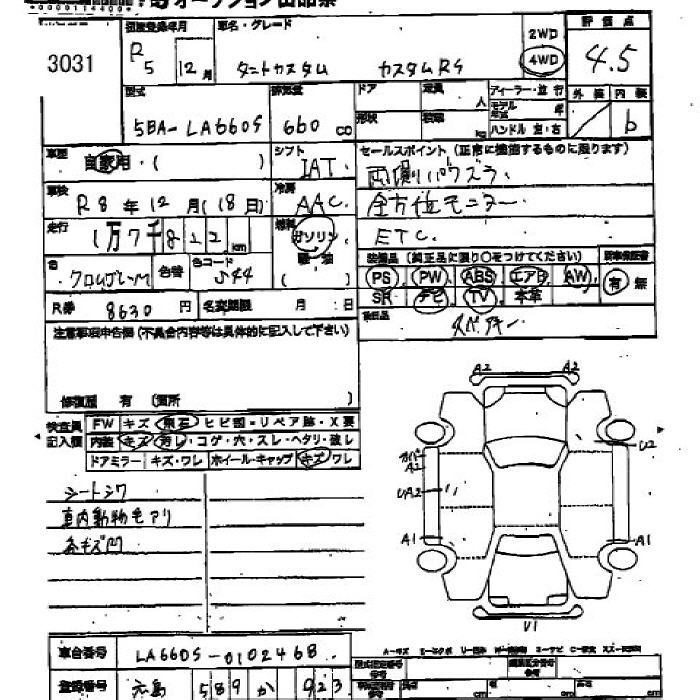 初度登録年月 車名・グレード 2WD 評価点
3031 R5 12月 タントカスタム カスタムRS 4WD 4.5
型式 排気量 ドア 定員 人 ディーラー・並行 外装 内装
5BA-LA660S 660 CC 形状 積載 kg モデル年式 年 ハンドル 左・右 b
車歴 自家用・( ) シフト IAT セールスポイント (正常に機能するものに限ります)
車検 R8年12月(18日) 冷房 AAC 両側パワスラ.
走行 1万7千822km 燃料 ガソリン 軽・油 全方位モニター
ETC.
色 クロムグレーM 色替 色コード S44 装備品 (純正品に限り○をつけてください)
PS PW ABS エアB AW 有 無
SR ナビ TV 本革
R券 8630 円 名変期限 月 : 日 後日品 スペアキー
注意事項申告欄 (不具合内容等は具体的に記入して下さい)
修復歴 有 (箇所 )
検査員記入欄 FW キズ 飛石 ヒビ割・リペア跡・X要
内装 キズ 汚レ・コゲ・穴・スレ・ヘタリ・破レ
ドアミラー キズ・ワレ ホイール・キャップ キズ ワレ
シートシワ
車内動物毛アリ
各キズ凹
A2 A2
U2
A2
UA2
A1 A1
U1
車台番号 LA660S-0102468
登録番号 広島 589 か 923
型式指定番号 類別区分番号
長さ cm 幅 cm 高さ cm